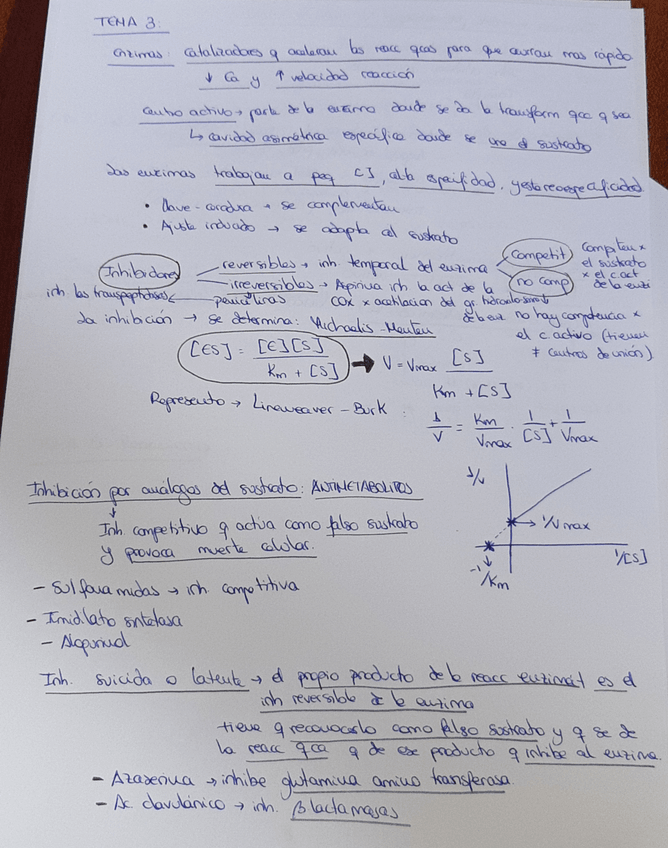 TEMA 3:
Enzimas: catalizadores q aceleran las reacc qcas para que ocurran mas rápido
↓ Ea y ↑ velocidad reacción
Centro activo → parte de la enzima donde se da la transform qca q sea
↳ cavidad asimétrica específica donde se une el sustrato
Las enzimas trabajan a peq [ ], alta especifidad, y estereoespecificidad
• Llave-cerradura → se complementan
• Ajuste inducido → se adapta al sustrato
Inhibidores
reversibles → inh. temporal del enzima
Competit
Compiten x el sustrato x el c act de la enzi
no comp
no hay competencia x el c activo (tienen ≠ centros de unión)
irreversibles → Aspirina inh la act de la COX x acetilacion del gr
inh las transpeptidasas ← penicilinas
La inhibición → se determina: Michaelis-Menten
[ES] = [E][S] / Km + [S] → V = Vmax [S] / Km + [S]
Represento → Lineweaver-Burk: 1/V = Km/Vmax · 1/[S] + 1/Vmax
Inhibición por análogos del sustrato: ANTIMETABOLITOS
↓
Inh. competitivo q actúa como falso sustrato
y provoca muerte celular.
1/v
1/Vmax
1/[S]
-1/Km
- Sulfonamidas → inh. competitiva
- Timidilato sintetasa
- Alopurinol
Inh. suicida o latente → el propio producto de la reacc enzimát es el
inh reversible de la enzima
tiene q reconocerlo como falso sustrato y q se de
la reacc qca q de ese producto q inhibe al enzima.
- Azaserina → inhibe glutamina amino transferasa.
- Ac. clavulánico → inh. β lactamasas